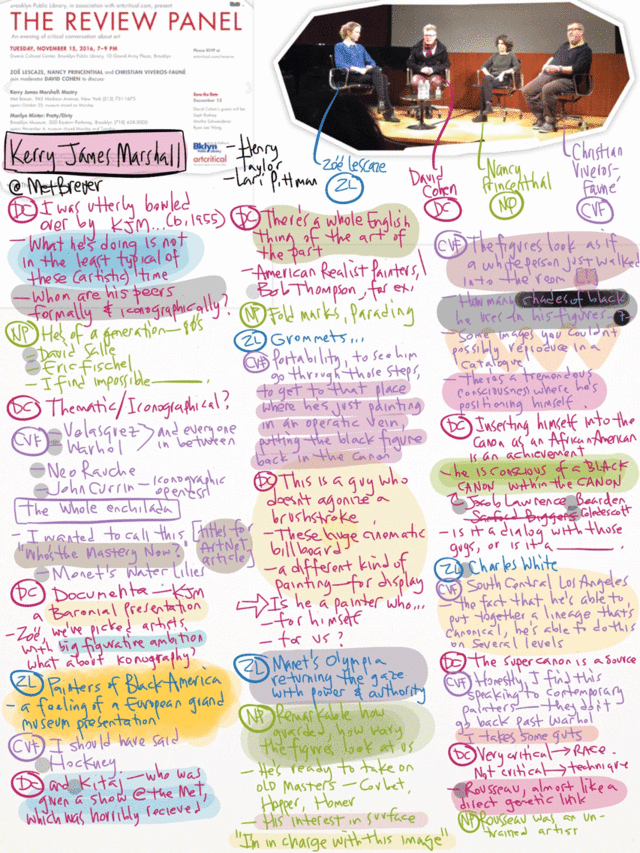 Brooklyn Public Library, in association with artcritical.com, present
THE REVIEW PANEL
An evening of critical conversation about art
TUESDAY, NOVEMBER 15, 2016, 7–9 PM
Dweck Cultural Center, Brooklyn Public Library, 10 Grand Army Plaza, Brooklyn
ZOË LESCAZE, NANCY PRINCENTHAL and CHRISTIAN VIVEROS-FAUNÉ
join moderator DAVID COHEN to discuss
Kerry James Marshall: Mastry
Marilyn Minter: Pretty/Dirty
Save the Date
December 13
Bklyn
artcritical
Zoë Lescaze
ZL
David
Cohen
DC
Nancy
Princenthal
NP
Christian
Viveros-
Fauné
CVF
Kerry James Marshall
@ Met Breuer
– Henry
Taylor
– Lari Pittman
DC I was utterly bowled
over by KJM... (b. 1955)
– What he's doing is not
in the least typical of
these (artistic) time
– Whom are his peers
formally & iconographically?
NP He's of a generation – 80s
– David Salle
– Eric Fischel
– I find impossible ______.
DC Thematic/Iconographical?
CVF – Velasquez
– Warhol
and everyone
in between
– Neo Rauche
– John Currin – iconographic
The Whole enchilada
– I wanted to call this
"Who's the Mastery Now?"
titles for
ArtNet
article
– Monet's Water Lilies
DC Documenta – KJM
a Baronial presentation
– Zoë, we've picked artists
with big figurative ambition
what about konography?
ZL Painters of Black America
– a feeling of a European grand
museum presentation
CVF I should have said
Hockney
DC and Kitaj – who was
given a show @ the Met,
which was horribly recieved
DC There's a whole English
thing of the art of
the past
– American Realist Painters,
Bob Thompson, for ex.
NP Fold marks, Parading
ZL Grommets...
CVF Portability, to see him
go through those steps,
to get to that place
where he's just painting
in an operatic vein,
putting the black figure
back in the canon
DC This is a guy who
doesn't agonize a
brushstroke
– These huge cinematic
billboard
– a different kind of
painting – for display
⇒ Is he a painter who...
– for himself
– for us?
ZL Manet's Olympia
returning the gaze
with power & authority
NP Remarkable how
guarded, how wary
the figures look at us
– He's ready to take on
old Masters – Corbet,
Hopper, Homer
– His interest in surface
"I'm in charge with this image"
CVF The figures look as if
a white person just walked
into the room
– How many shades of black
he uses in his figures – ?
– Some images you couldn't
possibly reproduce in a
catalogue
– there's a tremendous
consciousness where he's
positioning himself.
DC Inserting himself into the
canon as an African American
is an achievement
– he is conscious of a BLACK
CANON within the CANON
– Jacob Lawrence – Bearden
Sanford Biggers Coldescott
– is it a dialog with those
guys, or is it a ______.
ZL Charles White
CVF South Central Los Angeles
– The fact that he's able to
put together a lineage that's
canonical, he's able to do this
on several levels
DC The super canon is a source
CVF Honestly, I find this
speaking to contemporary
painters – they don't
go back past Warhol
It takes some guts
DC Very critical → Race
Not critical → technique
– Rousseau, almost like a
direct genetic link
NP Rousseau was an un-
trained artist